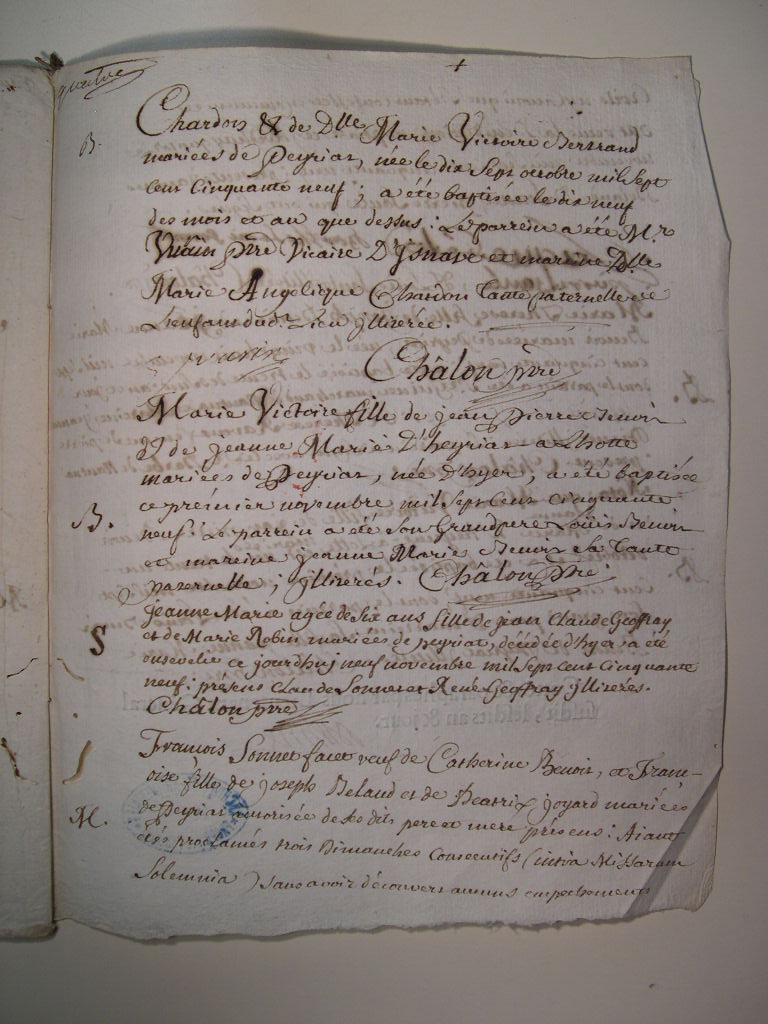 quatre
+
B.
Chardon & de Dlle Marie Victoire Bertrand
mariées de Peyriat, née le dix sept octobre mil sept
cent cinquante neuf ; a été baptisée le dix neuf
des mois et an que dessus : Le parrein a été Mr
ptre Vicaire D'Isnave et mareine Dlle
Marie Angelique Chardon Tante paternelle de
L'enfant dud. Lieu illiterée.
Châlon ptre
Marie Victoire fille de jean Pierre Benoin
& de jeanne Marie D'heyriat a Lhotte
mariées de Peyriat, née D'hyer, a été baptisée
ce premier novembre mil sept cent cinquante
B. neuf : Le parrein a été son Grandpere Louis Benoin
et mareine jeanne Marie Benoin sa Tante
paternelle ; illiterés. Châlon ptre.
Jeanne Marie agée de six ans fille de jean Claude Geoffray
S et de Marie Robin mariées de peyriat, décédée d'hyer a été
ensevelie ce jourdhuj neuf novembre mil sept cent cinquante
neuf : présens Claude Sonnet et René Geoffray illiterés.
Châlon ptre
François Sonnet facet veuf de Catherine Benoin, et Franc-
oise fille de joseph Beland et de Beatrix joyard mariées
M. de Peyriat autorisée de ses dits pere et mere présens : Aiant
étés proclamés trois Dimanches Consecutifs (intra Missarum
Solemnia) sans avoir découvert aucuns empechements